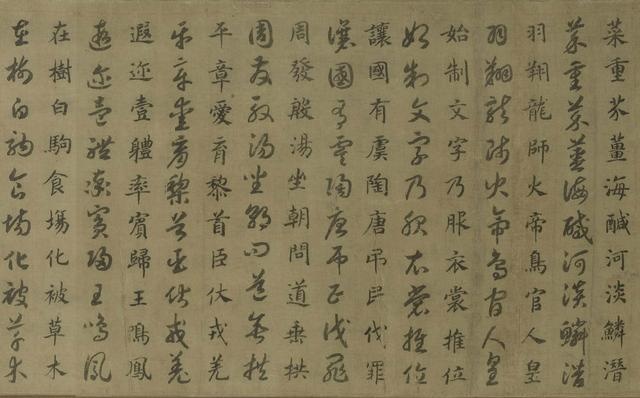 菜重芥薑海鹹河淡鱗潛
菜重芥薑海鹹河淡鱗潛
羽翔龍師火帝鳥官人皇
羽翔龍師火帝鳥官人皇
始制文字乃服衣裳推位
始制文字乃服衣裳推位
讓國有虞陶唐弔民伐罪
讓國有虞陶唐弔民伐罪
周發殷湯坐朝問道垂拱
周發殷湯坐朝問道垂拱
平章愛育黎首臣伏戎羌
平章愛育黎首臣伏戎羌
遐迩壹軆率賓歸王鳴鳳
遐迩壹體率賓歸王鳴鳳
在樹白駒食塲化被草木
在樹白駒食場化被草木